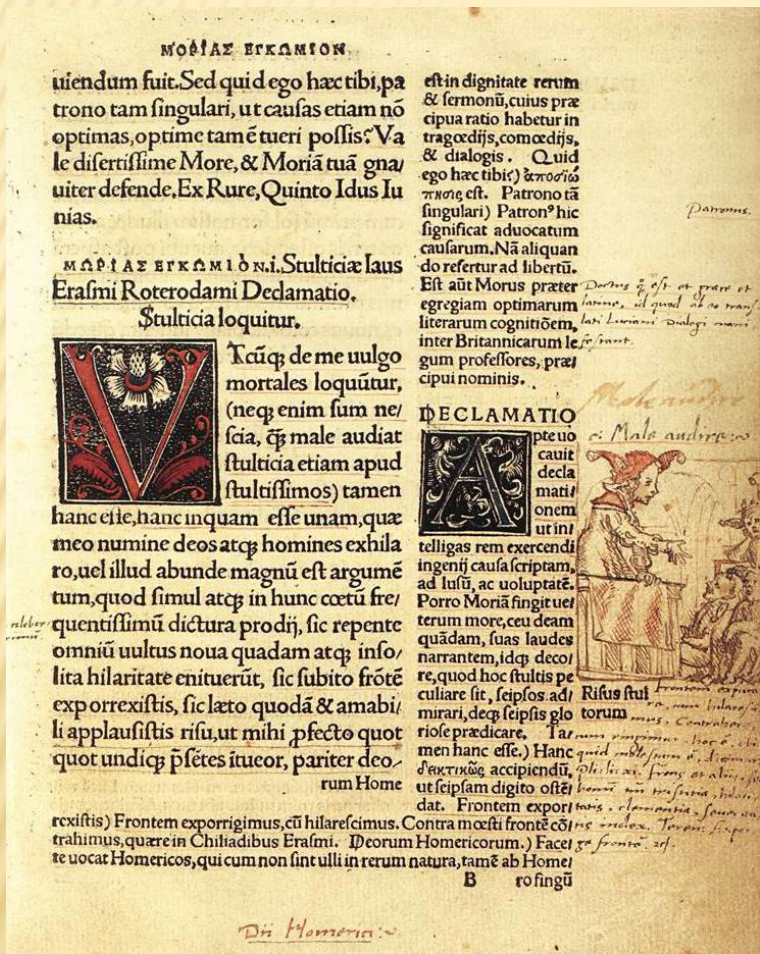 ΜΟΡΙΑΣ ΕΓΚΩΜΙΟΝ
uiendum fuit. Sed quid ego hæc tibi, pa
trono tam singulari, ut causas etiam nõ
optimas, optime tamẽ tueri possis? Va
le disertissime More, & Moriã tuã gna/
uiter defende. Ex Rure, Quinto Idus Iu
nias.
ΜΩΡΙΑΣ ΕΓΚΩΜΙΟΝ.i. Stulticiæ laus
Erasmi Roterodami Declamatio.
Stulticia loquitur.
VTcũq; de me uulgo
mortales loquũtur,
(neq; enim sum ne/
scia, q̃ male audiat
stulticia etiam apud
stultissimos) tamen
hanc esse, hanc inquam esse unam, quæ
meo numine deos atq; homines exhila
ro, uel illud abunde magnũ est argumẽ
tum, quod simul atq; in hunc cœtũ fre/
quentissimũ dictura prodij, sic repente
omniũ uultus noua quadam atq; inso/
lita hilaritate enituerũt, sic subito frõtẽ
exporrexistis, sic læto quodã & amabi/
li applausistis risu, ut mihi ꝓfecto quot
quot undiq; p̃sẽtes ĩtueor, pariter deo/
rum Home
est in dignitate rerum
& sermonũ, cuius præ
cipua ratio habetur in
tragœdijs, comœdijs,
& dialogis. Quid
ego hæc tibi;) ἀποσιώ
πησις est. Patrono tã
singulari) Patronꝰ hic
significat aduocatum
causarum. Nã aliquan
do refertur ad libertũ.
Est aũt Morus præter
egregiam optimarum
literarum cognitiõem,
inter Britannicarum le
gum professores, præ/
cipui nominis.
DECLAMATIO
Apte uo
cauit
decla
mati/
onem
ut in/
telligas rem exercendi
ingenij causa scriptam,
ad lusũ, ac uoluptatẽ.
Porro Moriã fingit ue/
terum more, ceu deam
quãdam, suas laudes
narrantem, idq; deco/
re, quod hoc stultis pe
culiare sit, seipsos ad/
mirari, deq; seipsis glo
riose prædicare. Ta/
men hanc esse.) Hanc
δεκτικῶς accipiendũ,
ut seipsam digito ostẽ/
dat. Frontem expor/
rexistis) Frontem exporrigimus, cũ hilarescimus. Contra mœsti frontẽ cõ/
trahimus, quære in Chiliadibus Erasmi. Deorum Homericorum.) Face/
te uocat Homericos, qui cum non sint ulli in rerum natura, tamẽ ab Home/
B ro fingũ
Patronus.
Doctus
Luciani Dialogi
Male audire
Risus stul
torum
Dii Homerici: